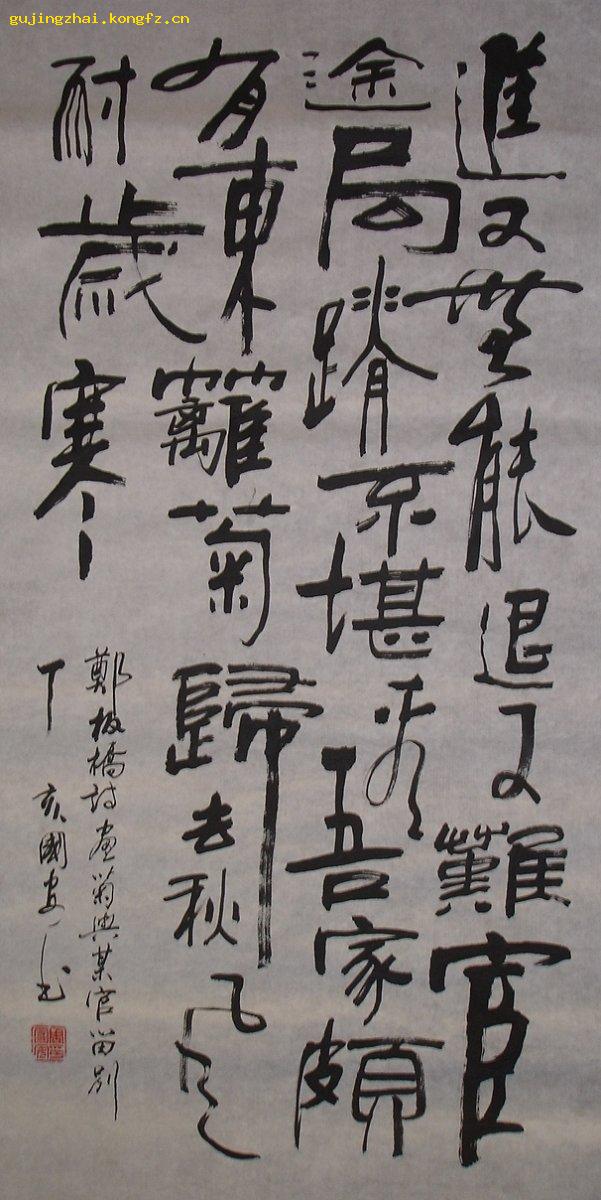 gujingzhai.kongfz.cn
進又無能退又難官
途局蹐不堪看吾家頗
有東籬菊歸去秋風
耐歲寒
鄭板橋詩畫菊與某官留別
丁亥國安